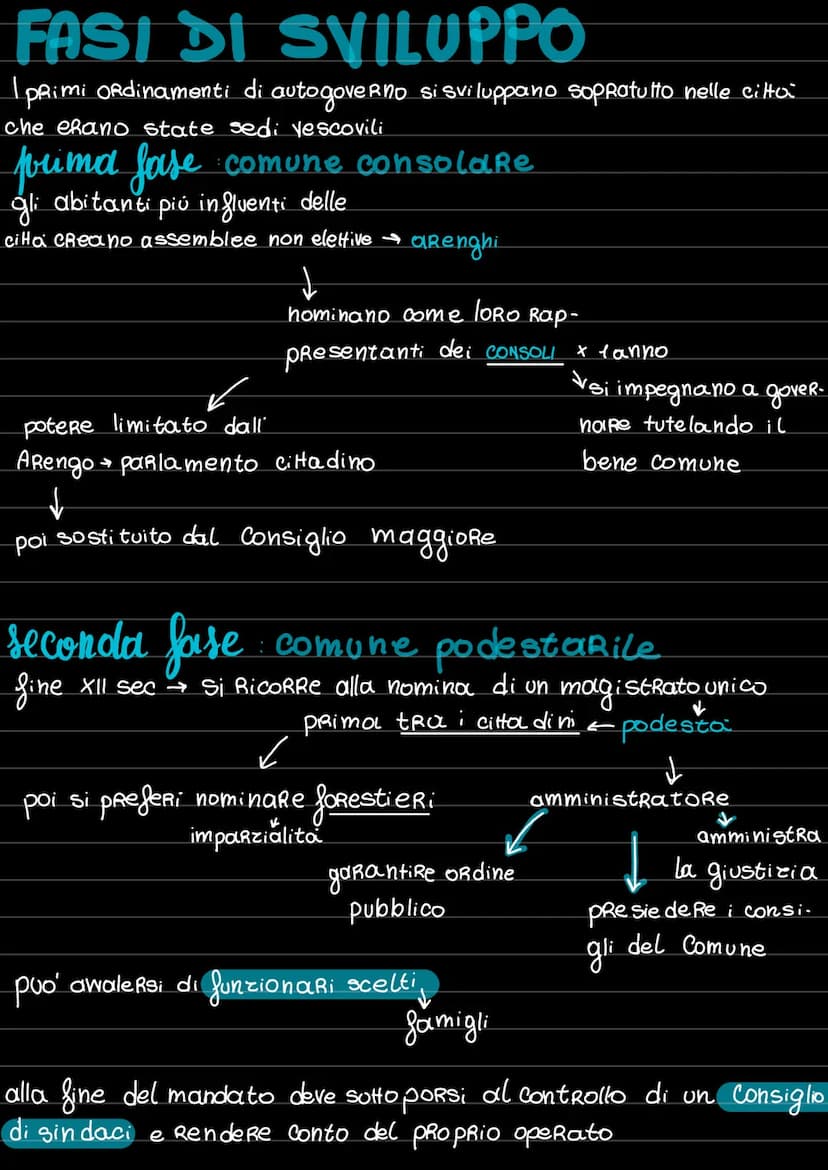 FASI DI SVILUPPO
I primi ordinamenti di autogoverno si sviluppano sopratutto nelle città
che erano state sedi vescovili
prima fase : comune consolare
gli abitanti più influenti delle
città creano assemblee non elettive → arenghi
↓
nominano come loro rap-
presentanti dei CONSOLI x 1 anno
↘ si impegnano a gover-
nare tutelando il
bene comune
potere limitato dall'
Arengo → parlamento cittadino
↓
poi sostituito dal Consiglio maggiore
seconda fase : comune podestarile
fine XII sec → si ricorre alla nomina di un magistrato unico
prima tra i cittadini ← podestà
poi si preferì nominare forestieri
imparzialità
amministratore
amministra
la giustizia
garantire ordine
pubblico
presiedere i consi-
gli del Comune
puo' avvalersi di funzionari scelti
famigli
alla fine del mandato deve sottoporsi al controllo di un Consiglio
di sindaci e rendere conto del proprio operato